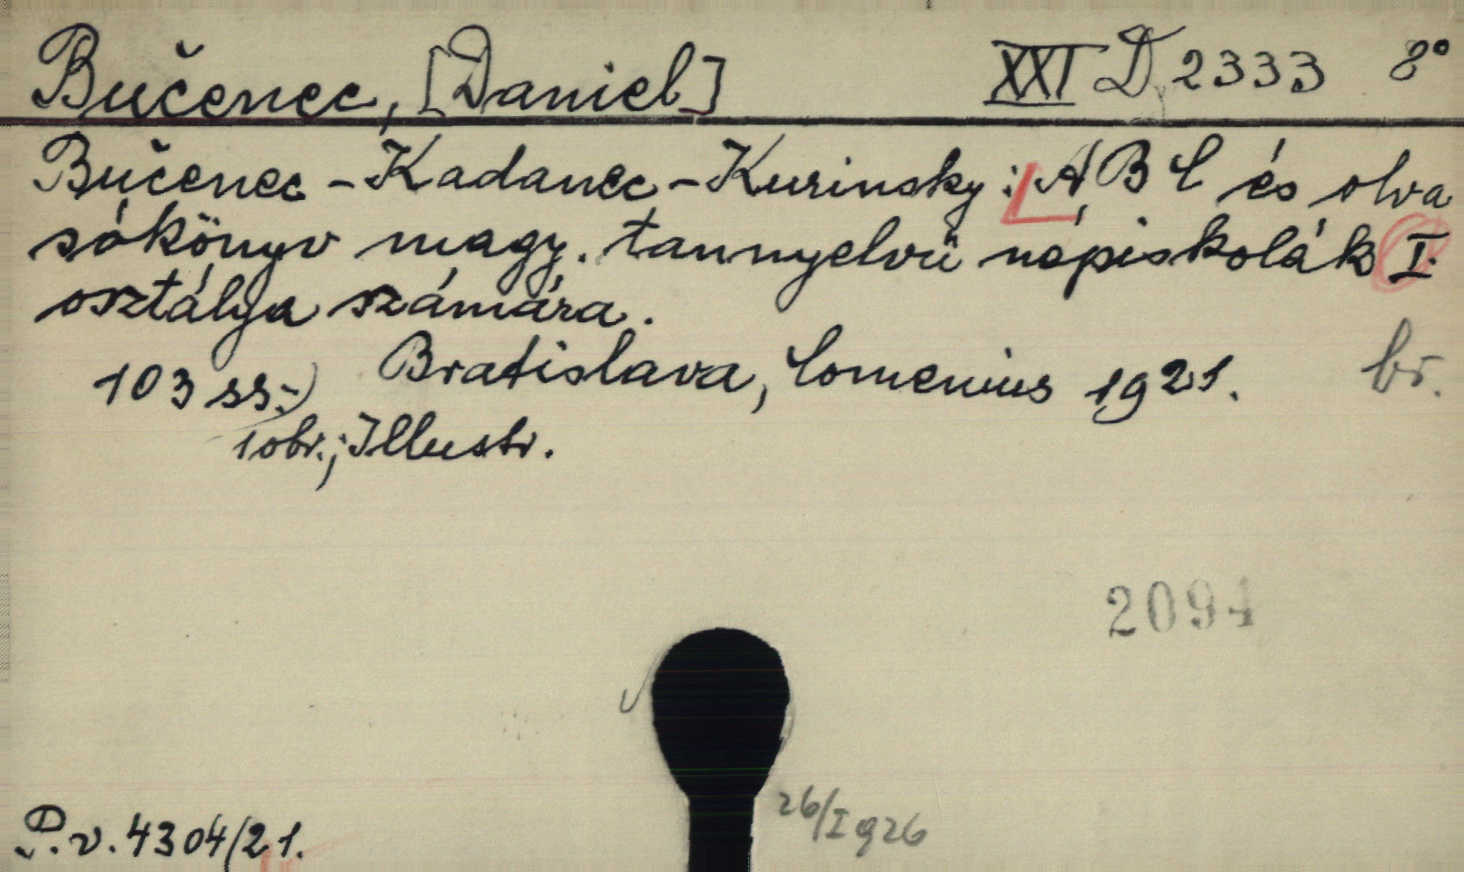 Bučenec, [Daniel] XXI D 2333 8°
Bučenec-Kadanec-Kurinsky: ABC és olva
sókönyv magy. tannyelvü népiskolák I.
osztálya számára.
103 ss.) Bratislava, Comenius 1921. br.
1 obr.; Illustr.
2094
26/I 926
P.v. 4304/21.